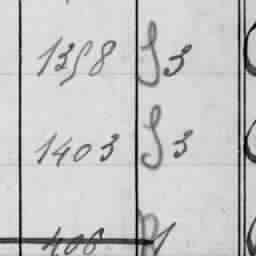 1358 S3
1403 S3
406